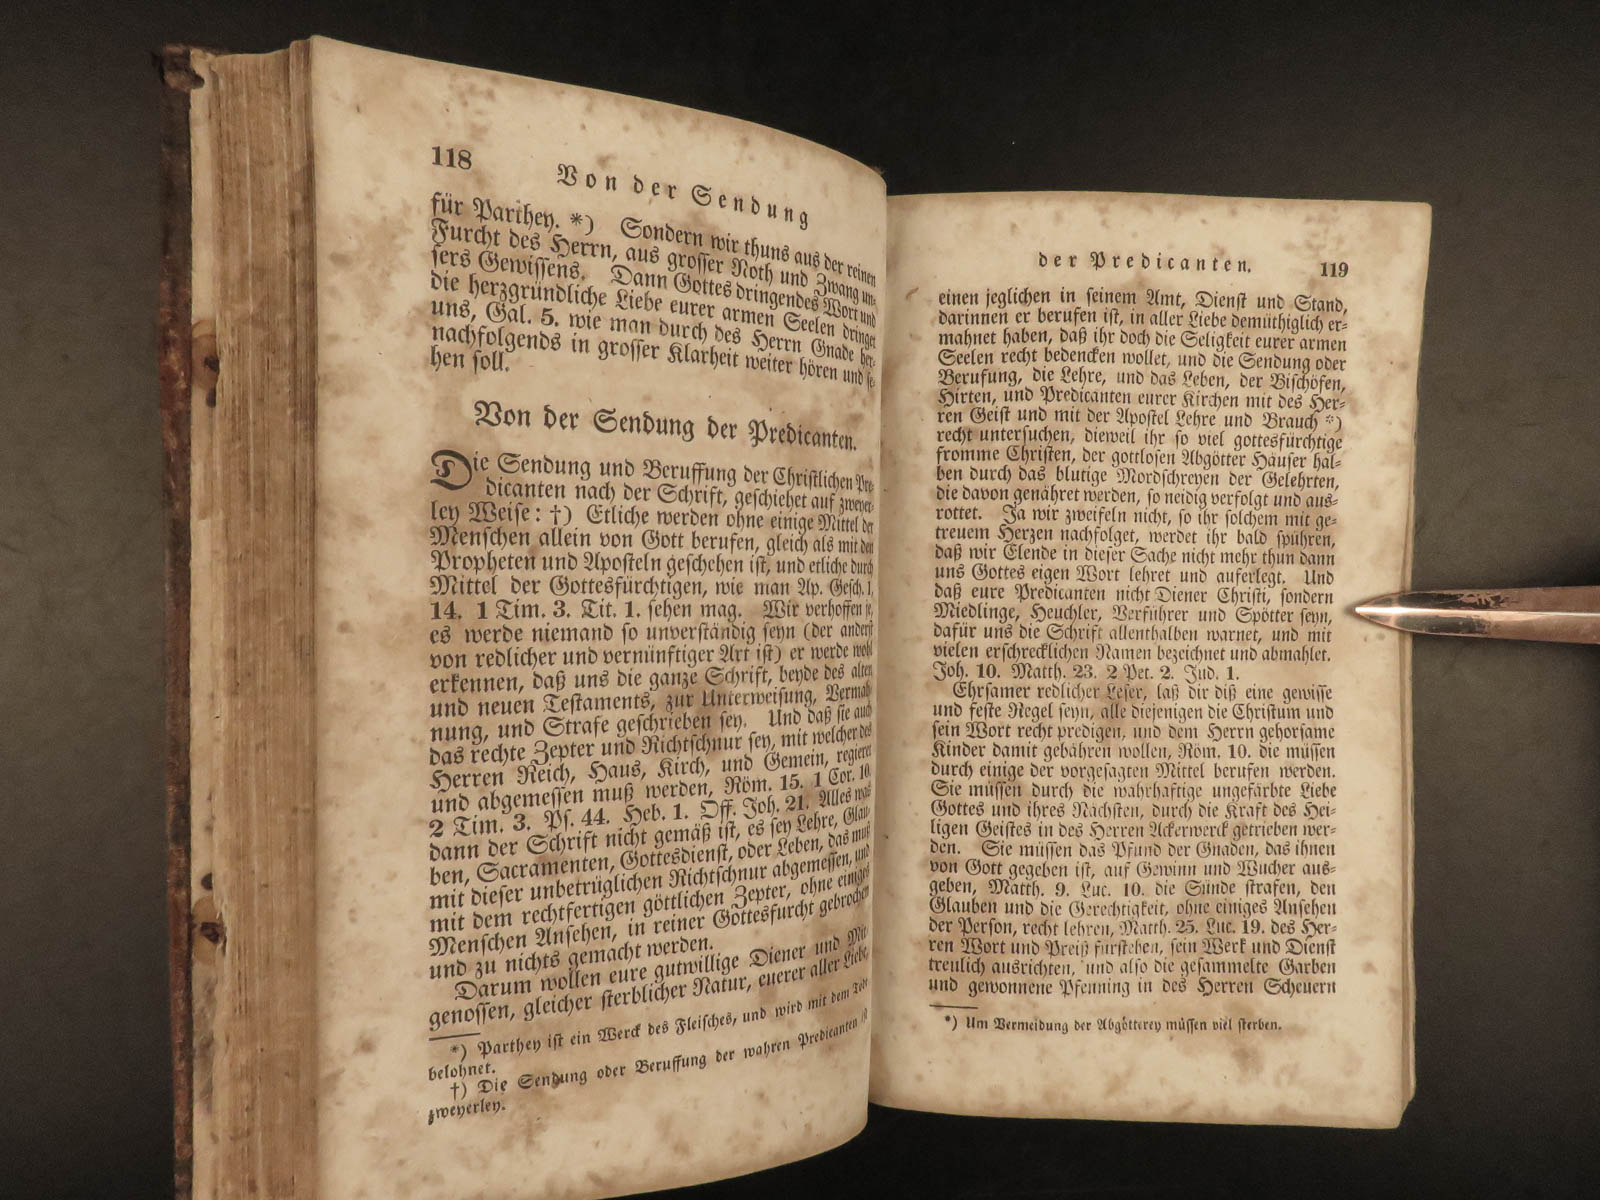 118
Von der Sendung
für Parthey. *) Sondern wir thuns aus der reinen
Furcht des Herrn, aus grosser Noth und Zwang un-
sers Gewissens. Dann Gottes dringendes Wort und
die herzgründliche Liebe eurer armen Seelen dringet
uns, Gal. 5. wie man durch des Herrn Gnade her-
nachfolgends in grosser Klarheit weiter hören und se-
hen soll.
Von der Sendung der Predicanten.
Die Sendung und Beruffung der Christlichen Pre-
dicanten nach der Schrift, geschiehet auf zweyer-
ley Weise: †) Etliche werden ohne einige Mittel der
Menschen allein von Gott berufen, gleich als mit den
Propheten und Aposteln geschehen ist, und etliche durch
Mittel der Gottesfürchtigen, wie man Ap. Gesch. 1,
14. 1 Tim. 3. Tit. 1. sehen mag. Wir verhoffen je,
es werde niemand so unverständig seyn (der anderst
von redlicher und vernünftiger Art ist) er werde wohl
erkennen, daß uns die ganze Schrift, beyde des alten
und neuen Testaments, zur Unterweisung, Vermah-
nung, und Strafe geschrieben sey. Und daß sie auch
das rechte Zepter und Richtschnur sey, mit welcher des
Herren Reich, Haus, Kirch, und Gemein, regieret
und abgemessen muß werden, Röm. 15. 1 Cor. 10.
2 Tim. 3. Ps. 44. Heb. 1. Off. Joh. 21. Alles was
dann der Schrift nicht gemäß ist, es sey Lehre, Glau-
ben, Sacramenten, Gottesdienst, oder Leben, das muß
mit dieser unbetrüglichen Richtschnur abgemessen, und
mit dem rechtfertigen göttlichen Zepter, ohne einiges
Menschen Ansehen, in reiner Gottesfurcht gebrochen
und zu nichts gemacht werden.
Darum wollen eure gutwillige Diener und Mit-
genossen, gleicher sterblicher Natur, euerer aller Liebe,
*) Parthey ist ein Werck des Fleisches, und wird mit dem Tode
belohnet.
†) Die Sendung oder Beruffung der wahren Predicanten ist
zweyerley.
der Predicanten. 119
einen jeglichen in seinem Amt, Dienst und Stand,
darinnen er berufen ist, in aller Liebe demüthiglich er-
mahnet haben, daß ihr doch die Seligkeit eurer armen
Seelen recht bedencken wollet, und die Sendung oder
Berufung, die Lehre, und das Leben, der Bischöfen,
Hirten, und Predicanten eurer Kirchen mit des Her-
ren Geist und mit der Apostel Lehre und Brauch *)
recht untersuchen, dieweil ihr so viel gottesfürchtige
fromme Christen, der gottlosen Abgötter Häuser hal-
ben durch das blutige Mordschreyen der Gelehrten,
die davon genähret werden, so neidig verfolgt und aus-
rottet. Ja wir zweifeln nicht, so ihr solchem mit ge-
treuem Herzen nachfolget, werdet ihr bald spühren,
daß wir Elende in dieser Sache nicht mehr thun dann
uns Gottes eigen Wort lehret und auferlegt. Und
daß eure Predicanten nicht Diener Christi, sondern
Miedlinge, Heuchler, Verführer und Spötter seyn,
dafür uns die Schrift allenthalben warnet, und mit
vielen erschrecklichen Namen bezeichnet und abmahlet.
Joh. 10. Matth. 23. 2 Pet. 2. Jud. 1.
Ehrsamer redlicher Leser, laß dir diß eine gewisse
und feste Regel seyn, alle diejenigen die Christum und
sein Wort recht predigen, und dem Herrn gehorsame
Kinder damit gebähren wollen, Röm. 10. die müssen
durch einige der vorgesagten Mittel berufen werden.
Sie müssen durch die wahrhaftige ungefärbte Liebe
Gottes und ihres Nächsten, durch die Kraft des Hei-
ligen Geistes in des Herren Ackerwerck getrieben wer-
den. Sie müssen das Pfund der Gnaden, das ihnen
von Gott gegeben ist, auf Gewinn und Wucher aus-
geben, Matth. 9. Luc. 10. die Sünde strafen, den
Glauben und die Gerechtigkeit, ohne einiges Ansehen
der Person, recht lehren, Matth. 25. Luc. 19. des Her-
ren Wort und Preiß fürstehen, sein Werk und Dienst
treulich ausrichten, und also die gesammelte Garben
und gewonnene Pfenning in des Herren Scheuern
*) Um Vermeidung der Abgötterey müssen viel sterben.